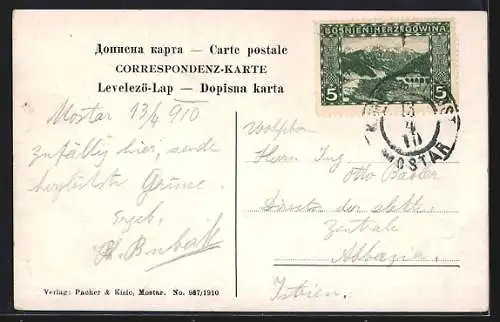 Допиена карта — Carte postale
CORRESPONDENZ-KARTE
Levelező-Lap — Dopisna karta
BOSNIEN I HERZEGOWINA
5 5
13
4
10
MOSTAR
Mostar 13/4 910
zufällig hier, sende
herzlichste Grüsse.
Ergeb.
Wohlgeb.
Herrn Ing.
Otto
Direktor der elektr.
Zentrale
Abbazia.
Istrien.
Verlag: Pacher & Kisić, Mostar. No. 967/1910